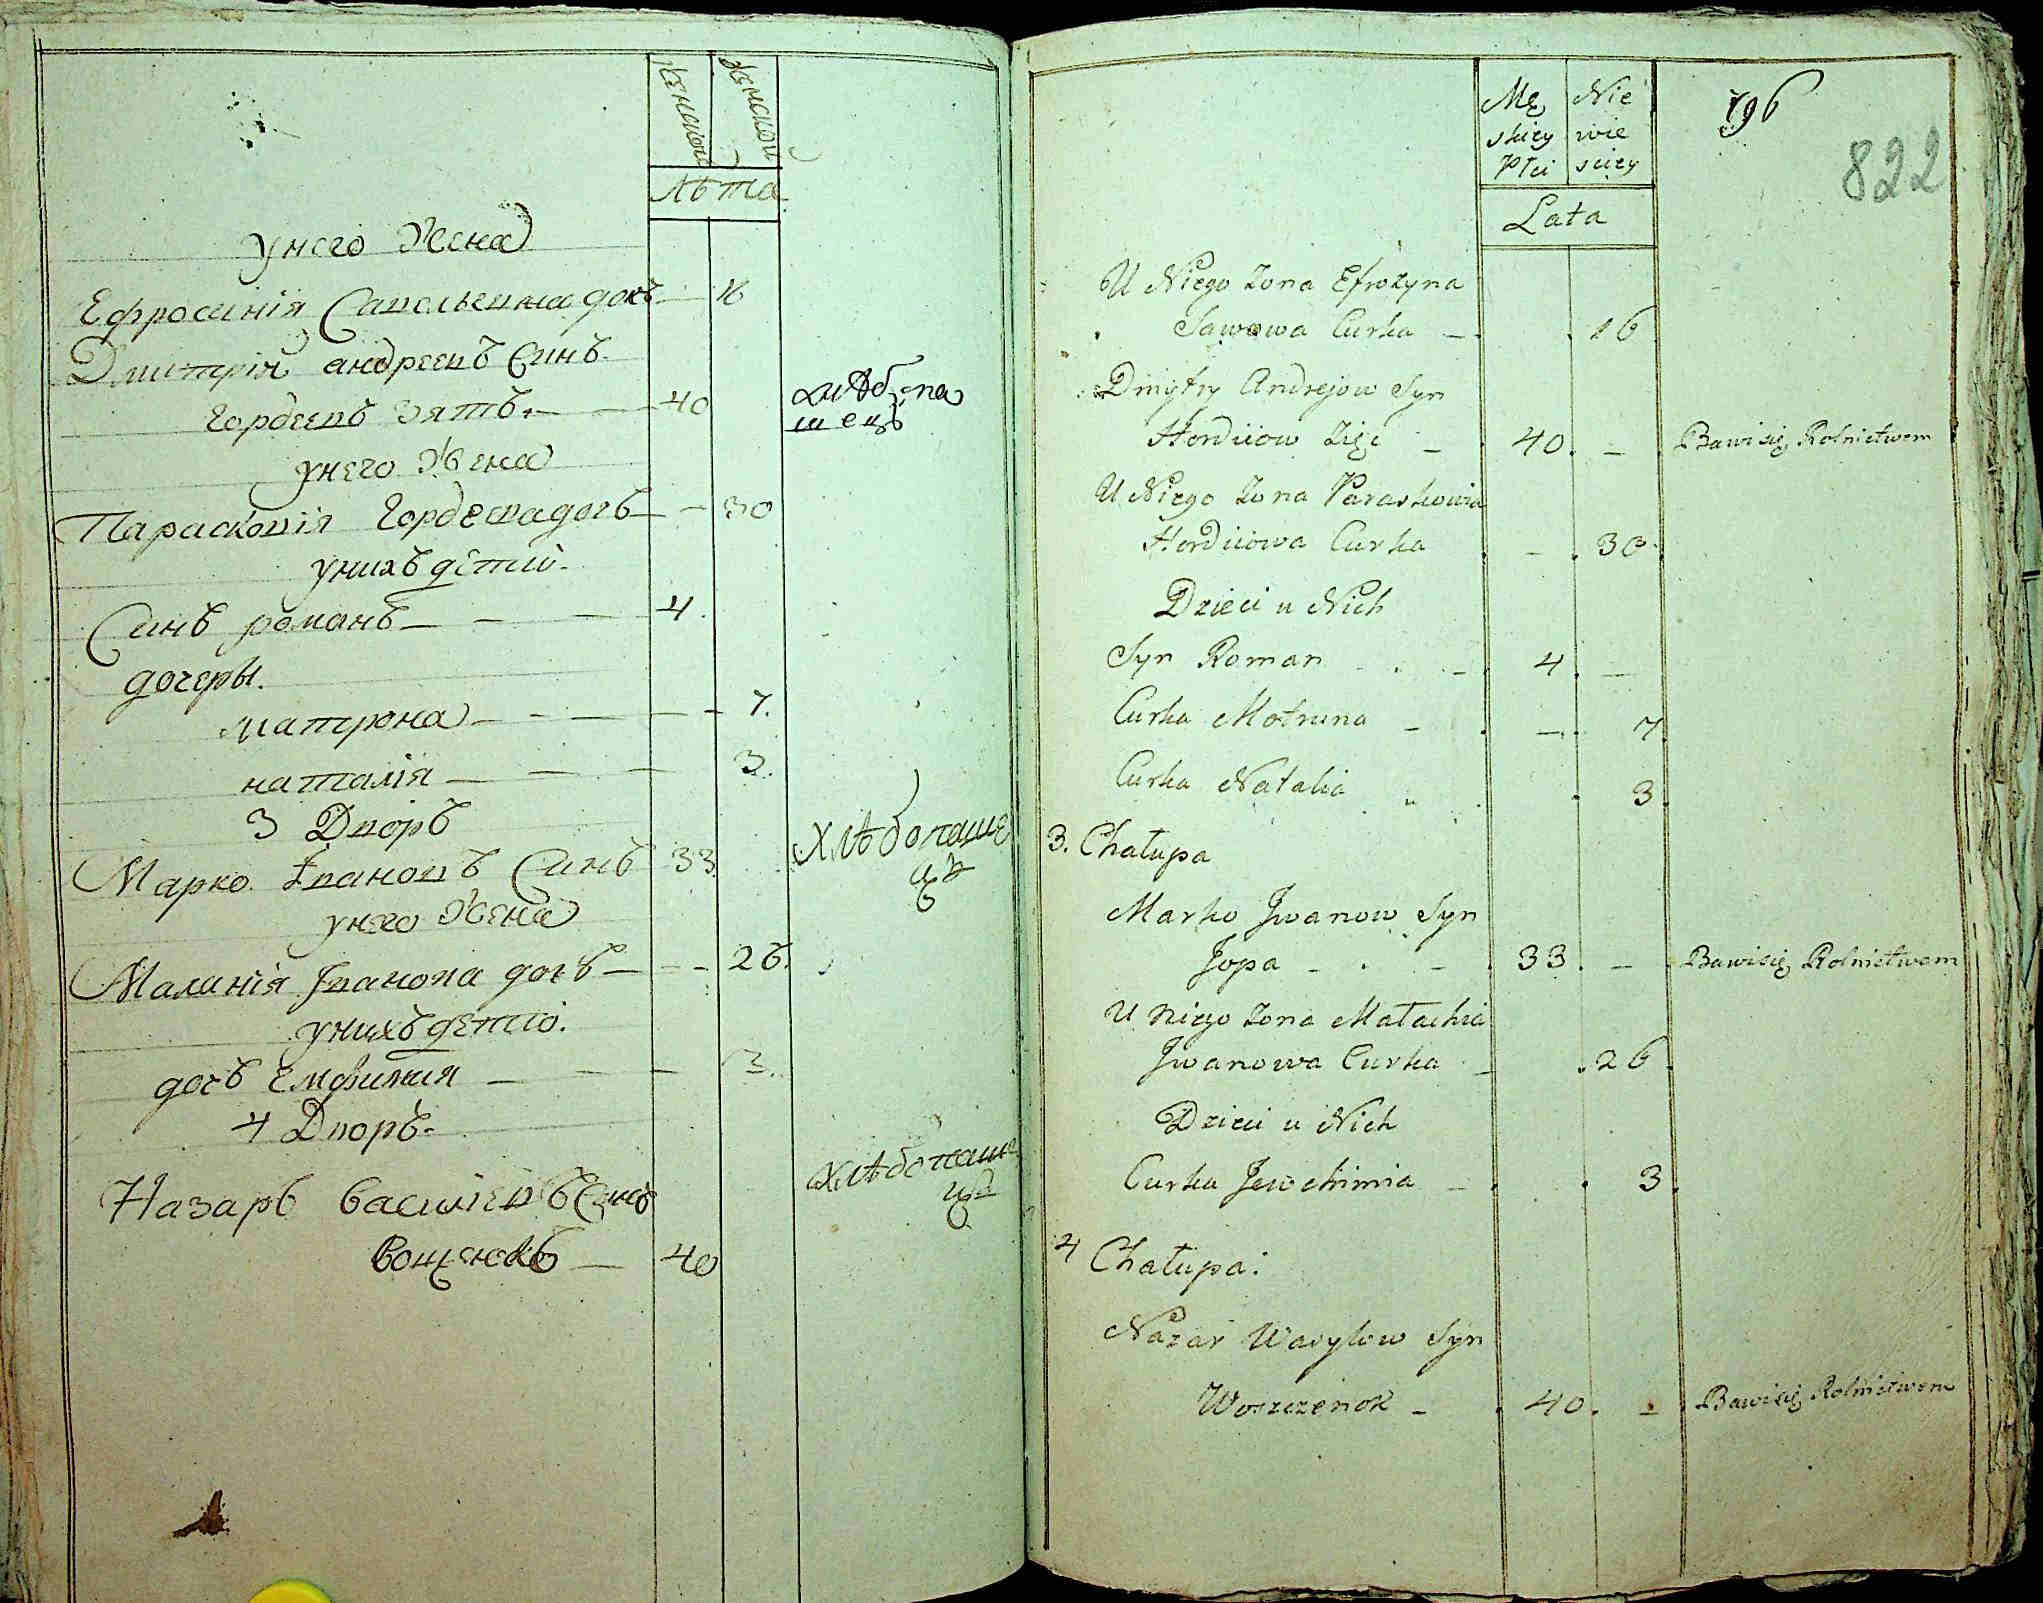 Женской
Женской
Лѣта
унего Жена
Ефросинія Савельевна дочъ — 16
Дмитрій андреевъ Синъ
Гордеевъ Зятъ — 40
хлѣбопа
шецъ
унего Жена
Парасковія Гордеева дочъ — 30
унихъ детий
Синъ романъ — 4.
дочеры.
матрона — 7.
наталія — 3.
3 Дворъ
Марко Івановъ Синъ 33
Хлѣбопаше
цъ
унего Жена
Маланія Іванова дочъ — 26.
унихъ детий.
дочъ — 3.
4 Дворъ.
Назаръ василіевъ Синъ
хлѣбопаше
цъ
Вощенокъ — 40
Mę
skiey
Płci
Nie
wie
sciey
796
822
Lata
U Niego Zona Efrozyna
Sawowa Curka — 16
Dmytry Andrejow Syn
Hordiiow Zięć — 40. — Bawi się Rolnictwem
U Niego Zona Paraskowia
Hordiiowa Curka — 30.
Dzieci u Nich
Syn Roman — 4. —
Curka Motruna — 7.
Curka Natalia 3.
3. Chałupa
Marko Jwanow Syn
Jopa — 33. — Bawi się Rolnictwem
U Niego Zona Małachia
Jwanowa Curka — .26.
Dzieci u Nich
Curka Jewchimia — 3.
4 Chałupa.
Nazar Wasylow Syn
Woszczenok — 40. — Bawi się Rolnictwem